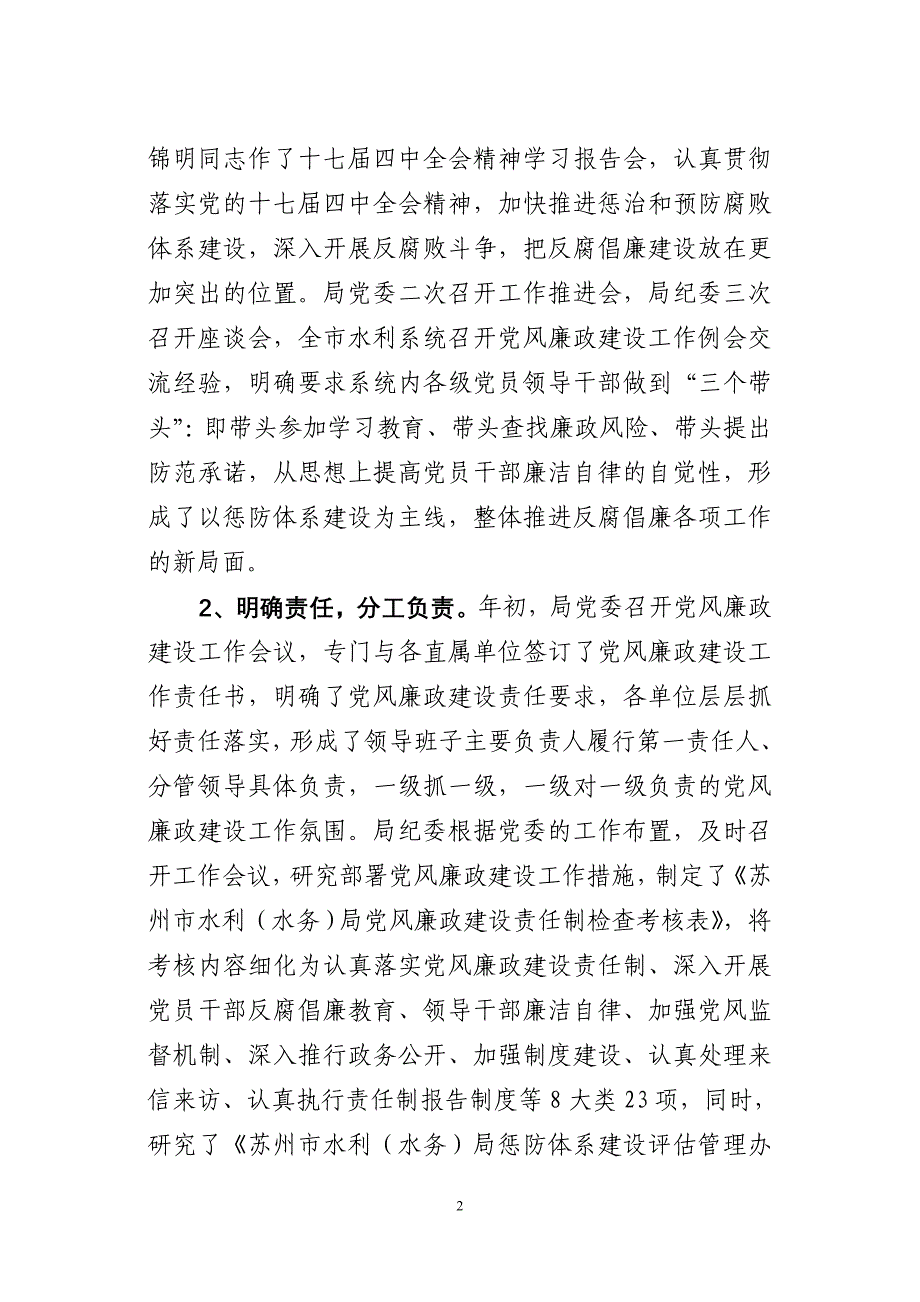 锦明同志作了十七届四中全会精神学习报告会，认真贯彻
落实党的十七届四中全会精神，加快推进惩治和预防腐败
体系建设，深入开展反腐败斗争，把反腐倡廉建设放在更
加突出的位置。局党委二次召开工作推进会，局纪委三次
召开座谈会，全市水利系统召开党风廉政建设工作例会交
流经验，明确要求系统内各级党员领导干部做到“三个带
头”：即带头参加学习教育、带头查找廉政风险、带头提出
防范承诺，从思想上提高党员干部廉洁自律的自觉性，形
成了以惩防体系建设为主线，整体推进反腐倡廉各项工作
的新局面。
2、明确责任，分工负责。年初，局党委召开党风廉政
建设工作会议，专门与各直属单位签订了党风廉政建设工
作责任书，明确了党风廉政建设责任要求，各单位层层抓
好责任落实，形成了领导班子主要负责人履行第一责任人、
分管领导具体负责，一级抓一级，一级对一级负责的党风
廉政建设工作氛围。局纪委根据党委的工作布置，及时召
开工作会议，研究部署党风廉政建设工作措施，制定了《苏
州市水利（水务）局党风廉政建设责任制检查考核表》，将
考核内容细化为认真落实党风廉政建设责任制、深入开展
党员干部反腐倡廉教育、领导干部廉洁自律、加强党风监
督机制、深入推行政务公开、加强制度建设、认真处理来
信来访、认真执行责任制报告制度等 8 大类 23 项，同时，
研究了《苏州市水利（水务）局惩防体系建设评估管理办
2